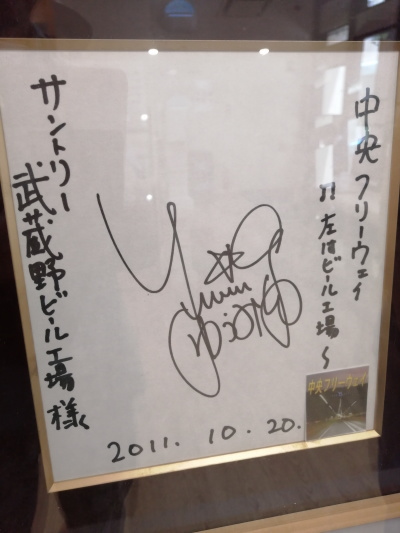 中央フリーウェイ
♫左はビール工場〜
Yuming
サントリー
武蔵野ビール工場様
2011. 10. 20.
中央フリーウェイ